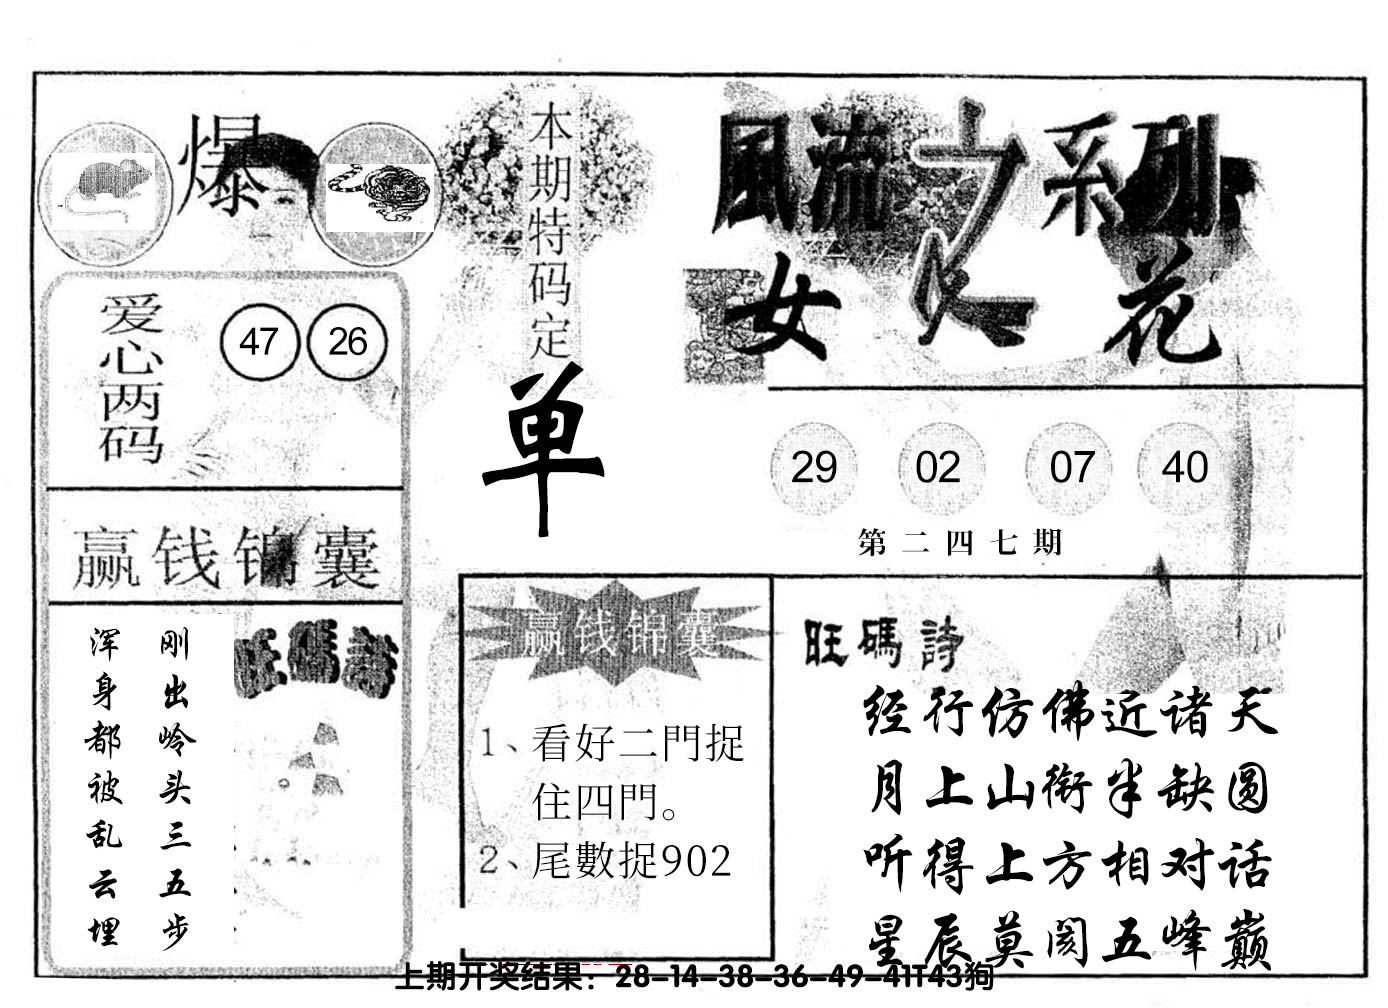 爆
爱心两码
47 26
赢钱锦囊
刚出岭头三五步
浑身都被乱云埋
旺碼詩
本期特码定
单
赢钱锦囊
1、看好二門捉
住四門。
2、尾數捉902
風流之系列
女人花
29 02 07 40
第二四七期
旺碼詩
经行仿佛近诸天
月上山衔半缺圆
听得上方相对话
星辰莫阂五峰巅
上期开奖结果：28-14-38-36-49-41T43狗